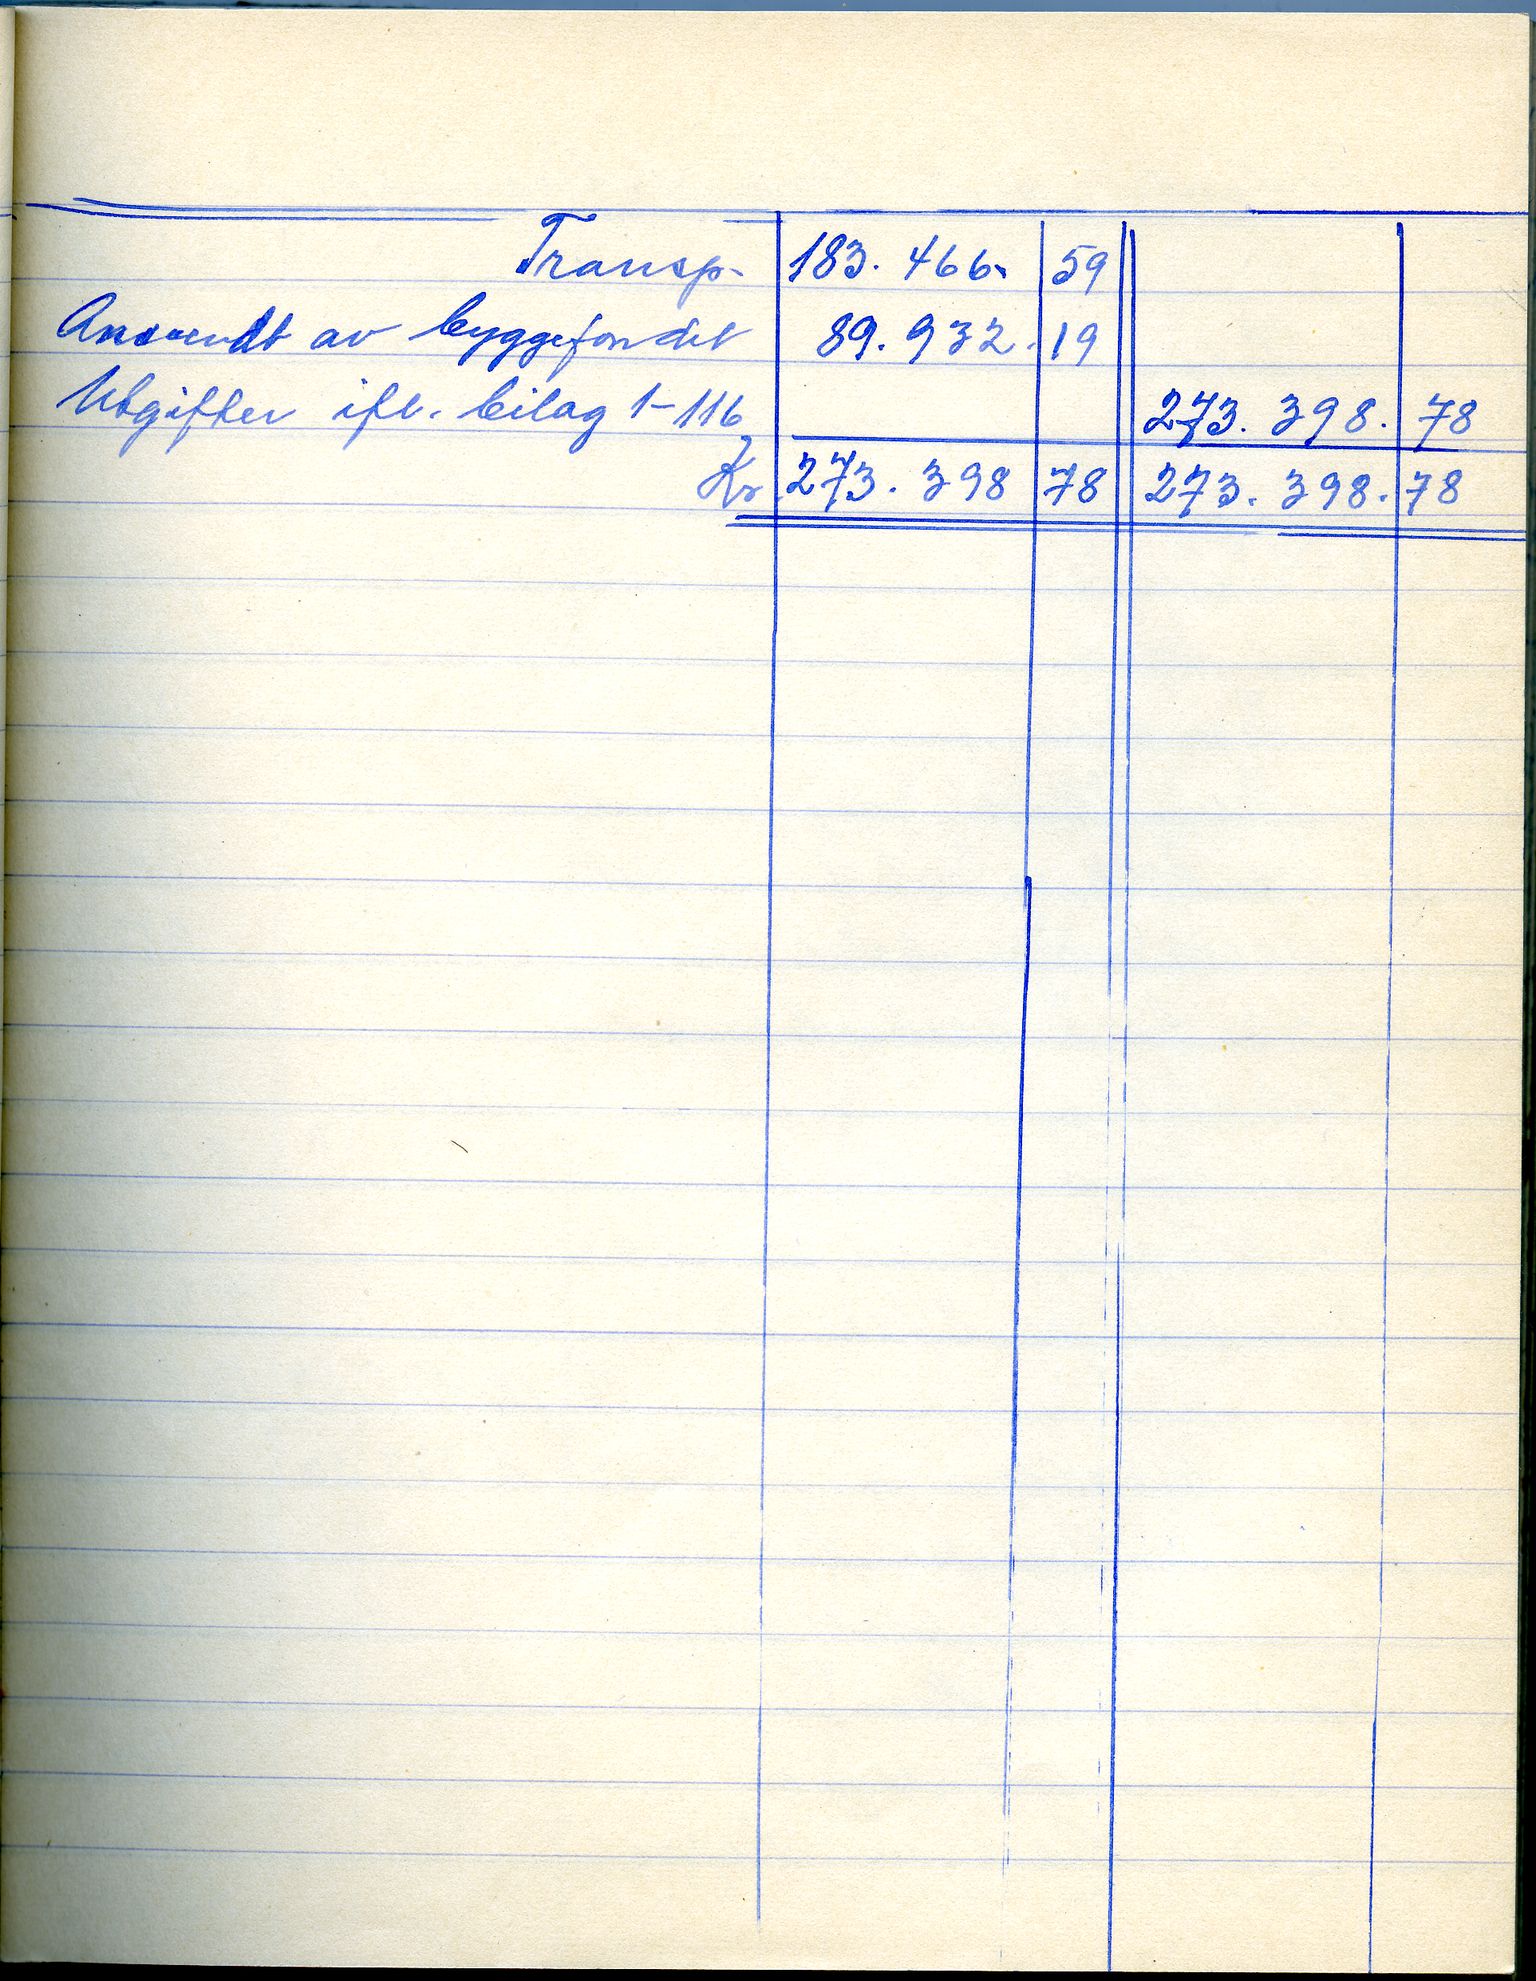 Transp. 183.466. 59
Anvendt av byggefondet 89.932. 19
Utgifter ifl. bilag 1-116 273.398. 78
Kr. 273.398 78 273.398. 78